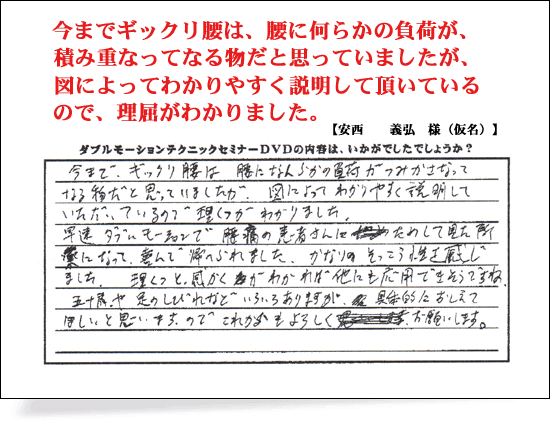 今までギックリ腰は、腰に何らかの負荷が、
積み重なってなる物だと思っていましたが、
図によってわかりやすく説明して頂いている
ので、理屈がわかりました。
【安西　義弘　様（仮名）】
ダブルモーションテクニックセミナーDVDの内容は、いかがでしたでしょうか？
今まで、ギックリ腰は 腰になんらかの負荷がつみかさなって
なる物だと思っていましたが、図によってわかりやすく説明して
いただいているので理くつがわかりました。
早速ダブルモーションで腰痛の患者さんに ためして見た所
になって、喜んで帰られました。かなりのそっこう性を感じ
ました。理くつと、感かくがわかれば他にも応用できそうですね。
五十肩や足のしびれなどいろいろありますが、具体的におしえて
ほしいと思います。のでこれからもよろしく お願いします。